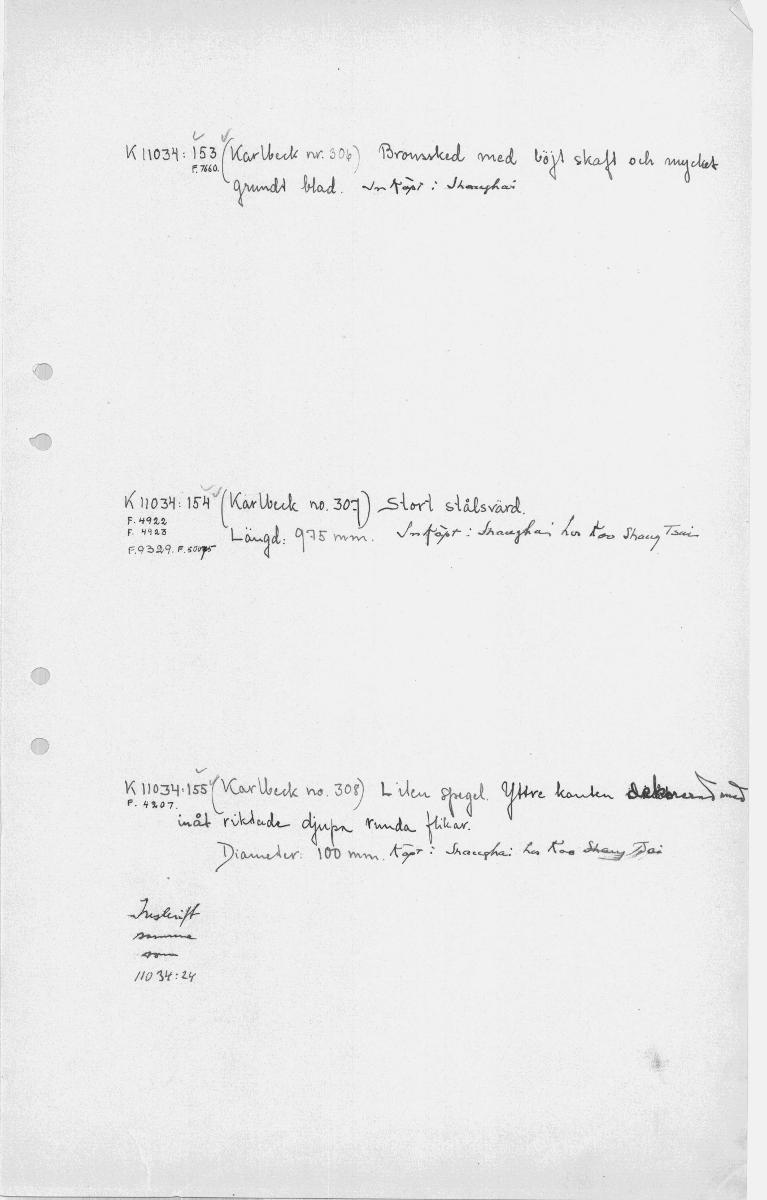 K 11034:153 (Karlbeck nr. 306) Bronssked med böjt skaft och mycket
F. 7660.
grundt blad. Inköpt i Shanghai
K 11034:154 (Karlbeck no. 307) Stort stålsvärd.
F. 4922
F. 4923
Längd: 975 mm. Inköpt i Shanghai hos Koo Shang Tsai
F. 9329.
K 11034:155 (Karlbeck no. 308) Liten spegel. Yttre kanten dekorerad med
F. 4207.
inåt riktade djupa runda flikar.
Diameter: 100 mm. Köpt i Shanghai hos Koo Shang Tsai
Inskrift
samma
som
11034:24